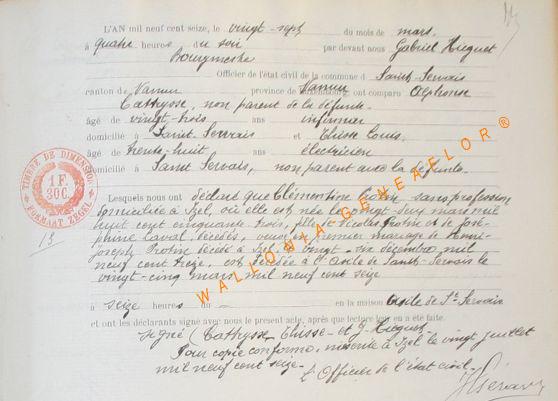 L'AN mil neuf cent seize, le vingt-sept du mois de mars,
à quatre heures du soir par devant nous Gabriel Huguet
Bourgmestre
Officier de l'état civil de la commune d Saint-Servais
canton de Namur province de Namur, ont comparu Alphonse
Cathysse, non parent de la défunte
âgé de vingt-trois ans infirmier
domicilié à Saint Servais et Thisse Louis,
âgé de trente-huit ans électricien
domicilié à Saint Servais, non parent avec la défunte.
Lesquels nous ont déclaré que Clémentine sans profession
domiciliée à Izel, où elle est née le vingt-deux mars mil
huit cent cinquante trois, fille de Nicolas et de José-
phine Laval, décédés, veuve en premier mariage de Henri-
Joseph Protin décédé à Izel le vingt-six décembre mil
neuf cent treize, est décédée à l'Asile de Saint-Servais le
vingt-cinq mars mil neuf cent seize
à seize heures du - en la maison Asile de St Servais
et ont les déclarants signé avec nous le présent acte, après que lecture leur en a été faite.
Signé (Cathysse - Thisse - et G. Huguet.
Pour copie conforme, à Izel le vingt juillet
mil neuf cent seize.-
L'Officier de l'état civil.-
TIMBRE DE DIMENSION
1F
30C.
FORMAAT ZEGEL
13
WALLONIA-GENEAFLOR ®